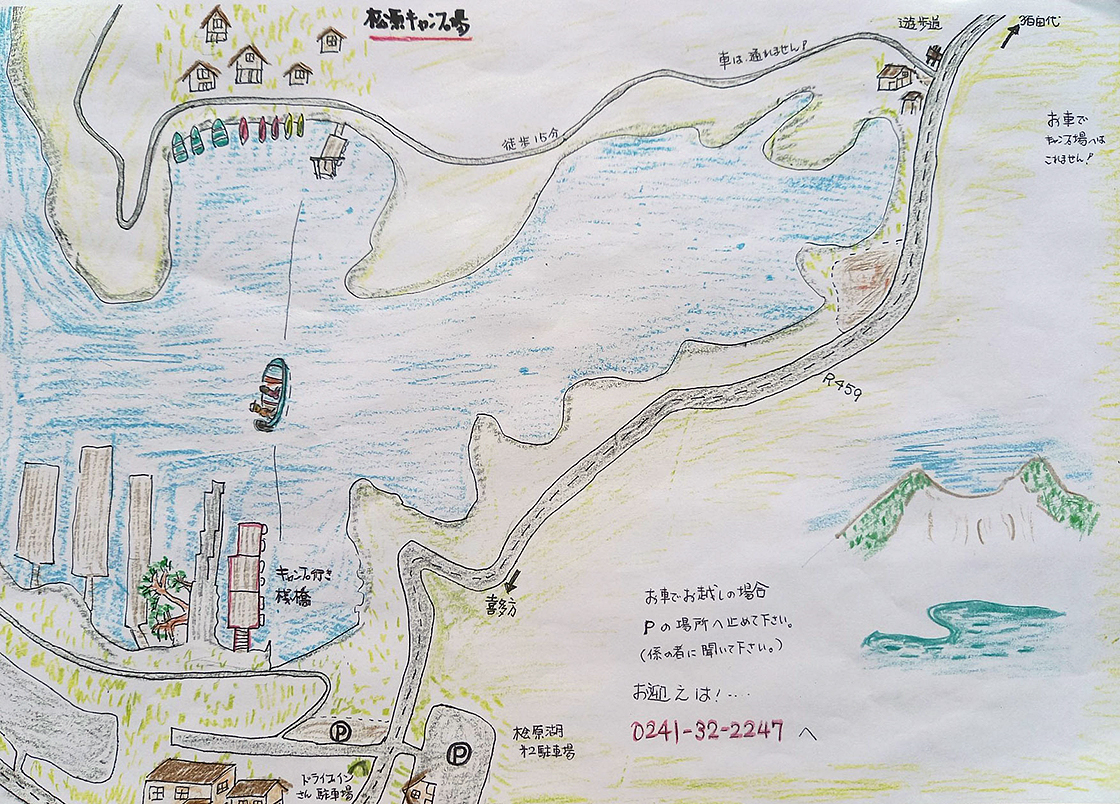 松原キャンプ場
遊歩道
猪苗代
車は、通れません!
徒歩15分
お車で
キャンプ場へは
これません!
R459
キャンプ行き
桟橋
喜多方
お車でお越しの場合
Pの場所へ止めて下さい。
(係の者に聞いて下さい。)
お迎えは!‥‥
0241-32-2247 へ
P
P
桧原湖
第2駐車場
ドライブイン
さん駐車場